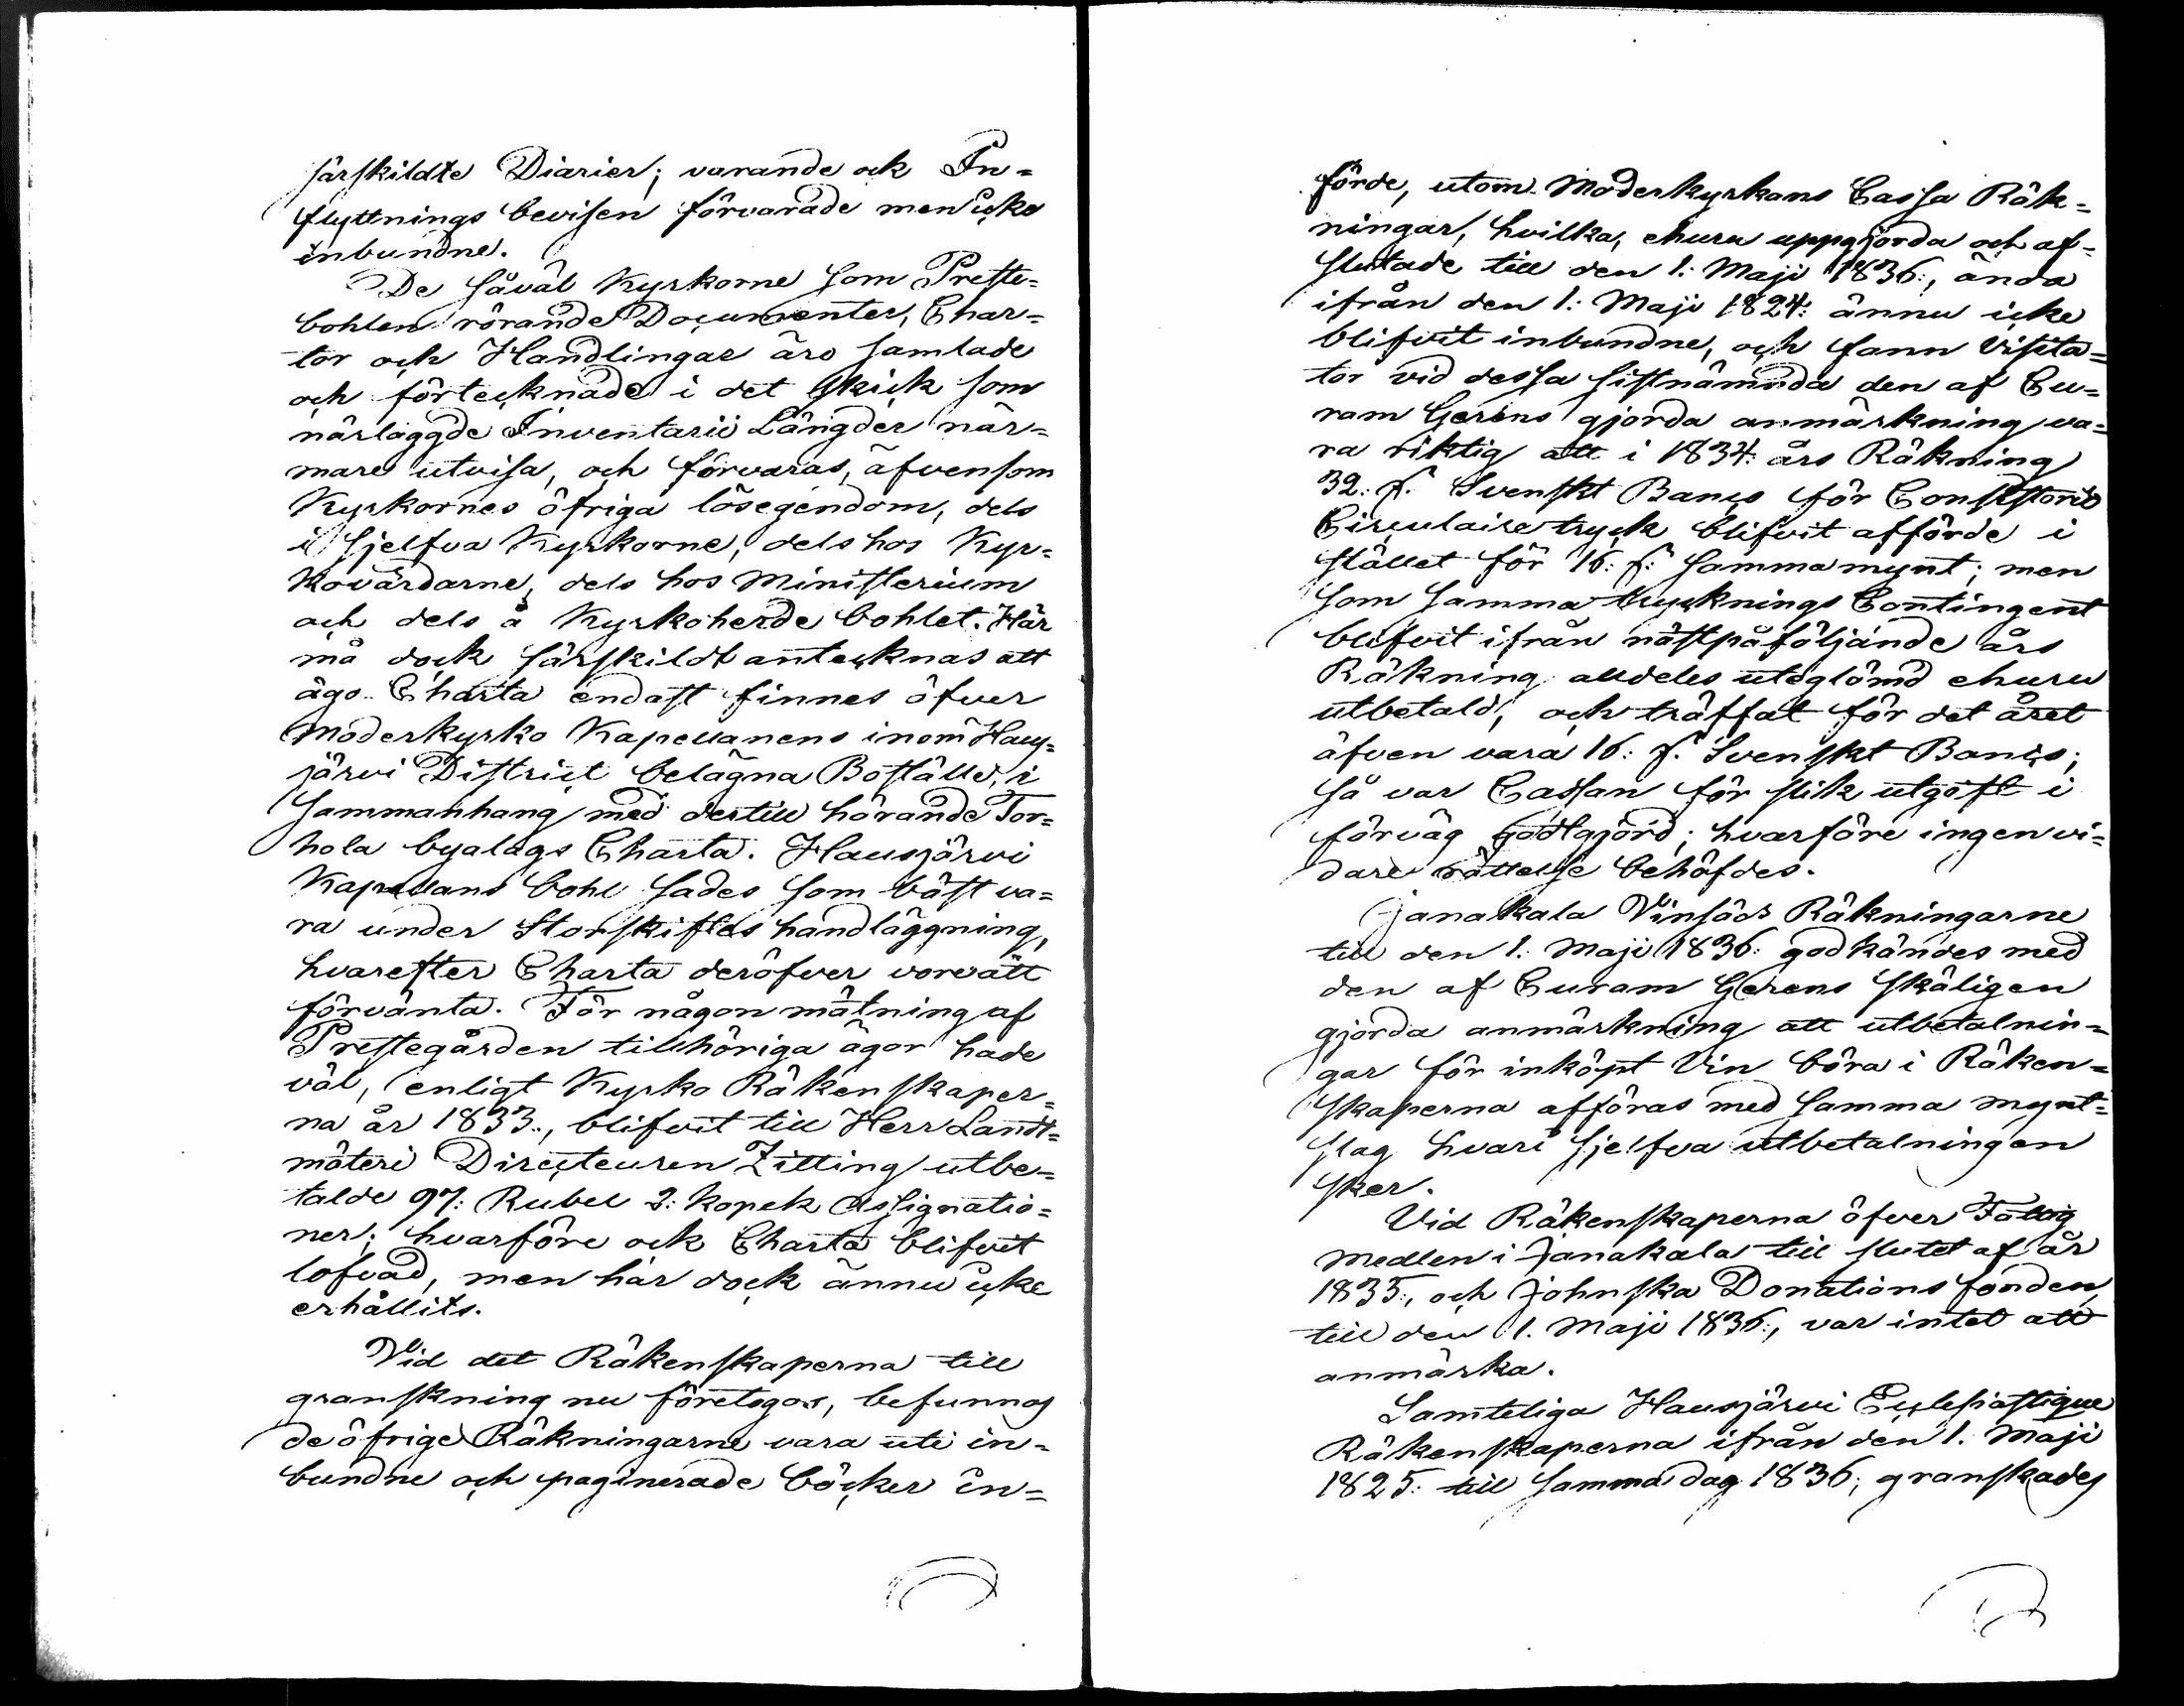 särskildte Diarier; varande ock In=
flyttnings bevisen förvarade men icke
inbundne.
De såväl Kyrkorne som Preste=
bohlen rörande Documenter, Char=
tor och Handlingar äro samlade
och förtecknade i det skick som
närlaggde Inventarii Längder när=
mare utvisa, och förvaras, äfvensom
Kyrkornes öfriga lösegendom, dels
i sjelfva Kyrkorne, dels hos Kyr=
kovärdarne, dels hos Ministerium
och dels å Kyrkoherde bohlet. Här
må dock särskildt antecknas att
ägo Charta endast finnes öfver
Moderkyrko Kapellanens inom Haus=
järvi District belägna Boställe, i
sammanhang med dertill hörande Tor=
hola byalags Charta. Hausjärvi
Kapellans bohl sades som bäst va=
ra under Storskiftes handläggning,
hvarefter Charta deröfver vore att
förvänta. För någon mätning af
Prestegården tillhöriga ägor hade
väl, enligt Kyrko Räkenskaper=
na år 1833., blifvit till Herr Landt=
mäteri Directeuren Zitting utbe=
talde 97: Rubel 2: kopek Assignatio=
ner; hvarföre ock Charta blifvit
lofvad, men här dock ännu icke
erhållits.
Vid det Räkenskaperna till
granskning nu företogos, befunnos
de öfrige Räkningarne vara uti in=
bundne och paginerade böcker in=
förde, utom Moderkyrkans Cassa Räk=
ningar, hvilka, ehuru uppgjorda och af=
slutade till den 1: Maji 1836:, ända
ifrån den 1: Maji 1824: ännu icke
blifvit inbundne, och fann Visita=
tor vid dessa sistnämnda den af Cu=
ram Gerens gjorda anmärkning va=
ra riktig att i 1834: års Räkning
32: s. Svenskt Banco för Consistorii
Circulaire tryck blifvit afförde i
stället för 16: s: samma mynt; men
som samma trycknings Contingent
blifvit ifrån nästpåföljande års
Räkning alldeles uteglömd ehuru
utbetald, och träffat för det året
äfven vara 16: s. Svenskt Banco;
så var Cassan för slik utgift i
förväg godtgjord; hvarföre ingen vi=
dare rättelse behöfdes.
Janakala Vinsäds Räkningarne
till den 1: Maji 1836: godkändes med
den af Curam Gerens skäligen
gjorda anmärkning att utbetalnin=
gar för inköpt Vin böra i Räken=
skaperna afföras med samma mynt=
slag hvari sjelfva utbetalningen
sker.
Vid Räkenskaperna öfver Fattig
medlen i Janakala till slutet af år
1835:, och Johnska Donations fonden,
till den 1. Maji 1836:, var intet att
anmärka.
Samteliga Hausjärvi Ecclesiastique
Räkenskaperna ifrån den 1. Maji
1825: till samma dag 1836; granskades